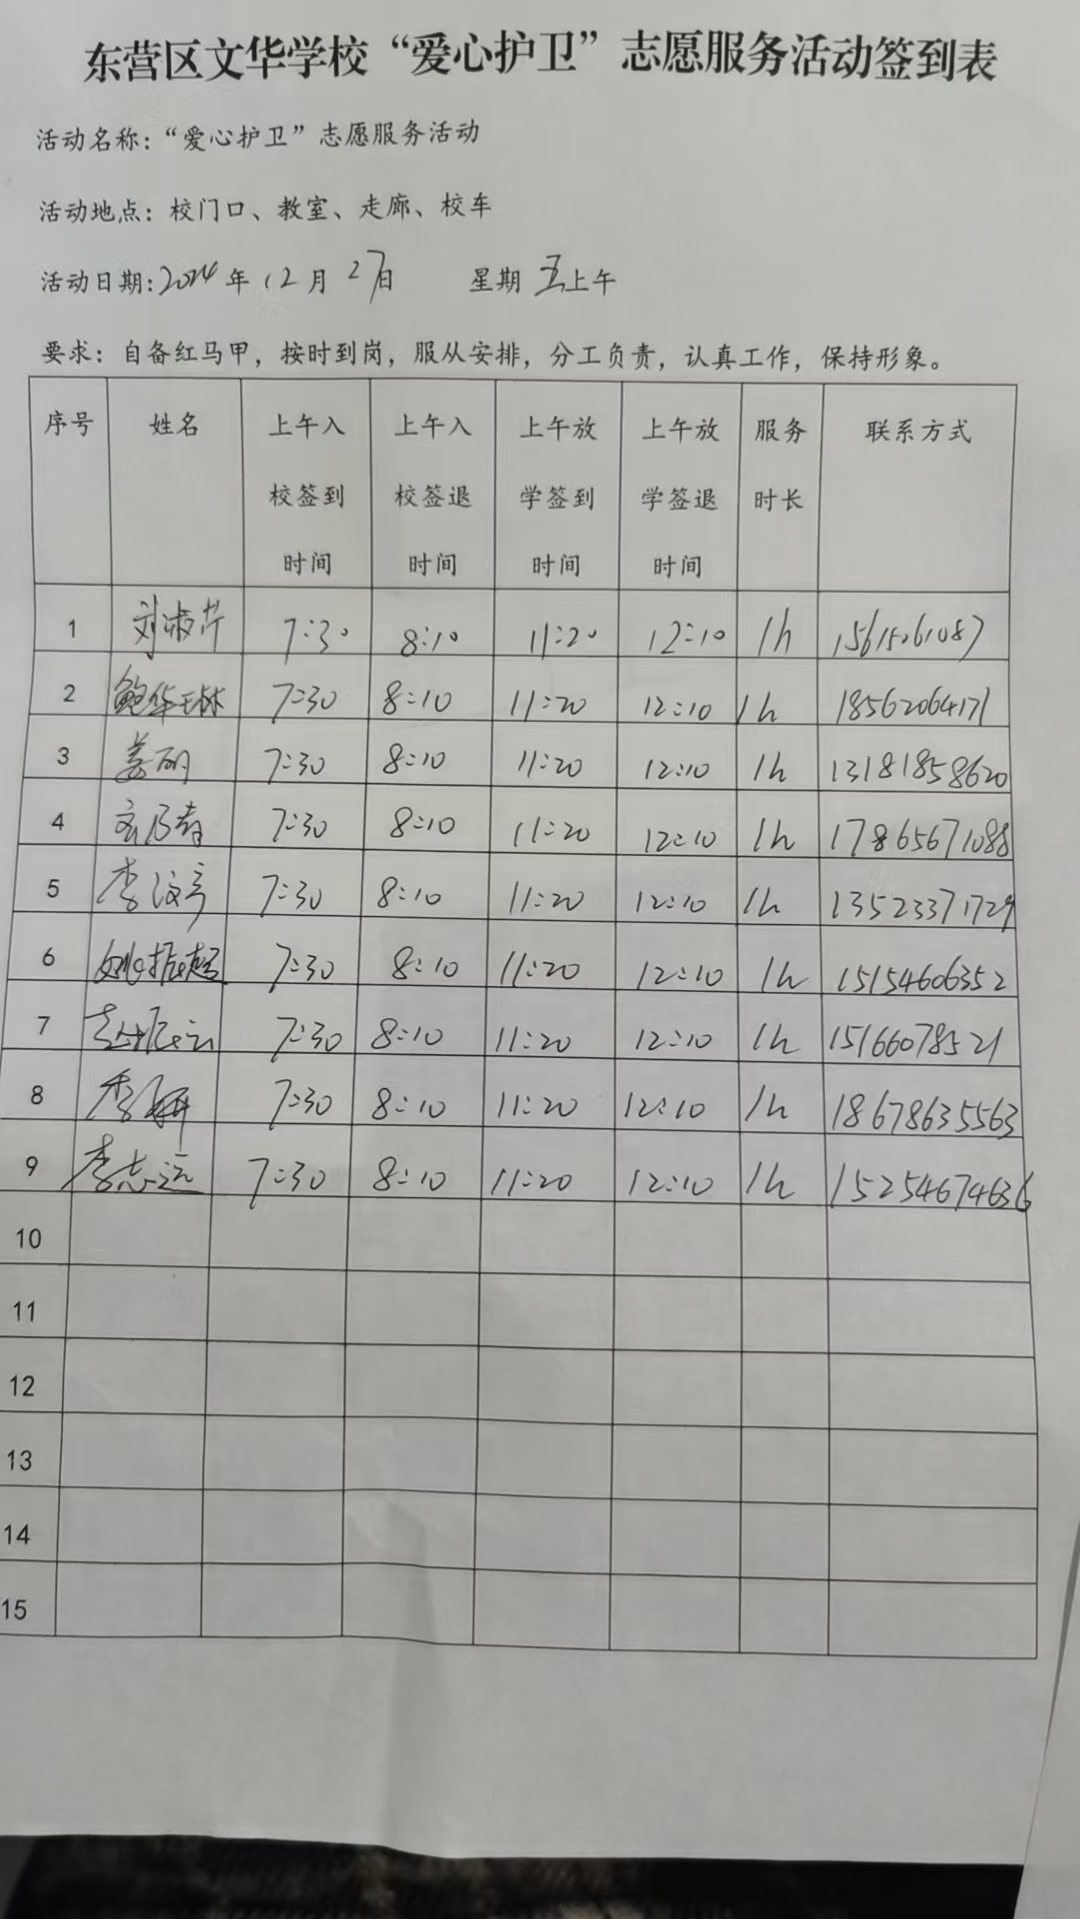 东营区文华学校“爱心护卫”志愿服务活动签到表
活动名称：“爱心护卫”志愿服务活动
活动地点：校门口、教室、走廊、校车
活动日期：2024年12月27日 星期五上午
要求：自备红马甲，按时到岗，服从安排，分工负责，认真工作，保持形象。
序号 姓名 上午入校签到时间 上午入校签退时间 上午放学签到时间 上午放学签退时间 服务时长 联系方式
1 刘淑芹 7:30 8:10 11:20 12:10 1h 15615261087
2 鲍华琳 7:30 8:10 11:20 12:10 1h 18562064171
3 姜丽 7:30 8:10 11:20 12:10 1h 13181858620
4 7:30 8:10 11:20 12:10 1h 17865671088
5 李汶亭 7:30 8:10 11:20 12:10 1h 13523371729
6 姚振超 7:30 8:10 11:20 12:10 1h 15154606352
7 7:30 8:10 11:20 12:10 1h 15166078521
8 李妍 7:30 8:10 11:20 12:10 1h 18678635563
9 李志远 7:30 8:10 11:20 12:10 1h 15254674636
10
11
12
13
14
15